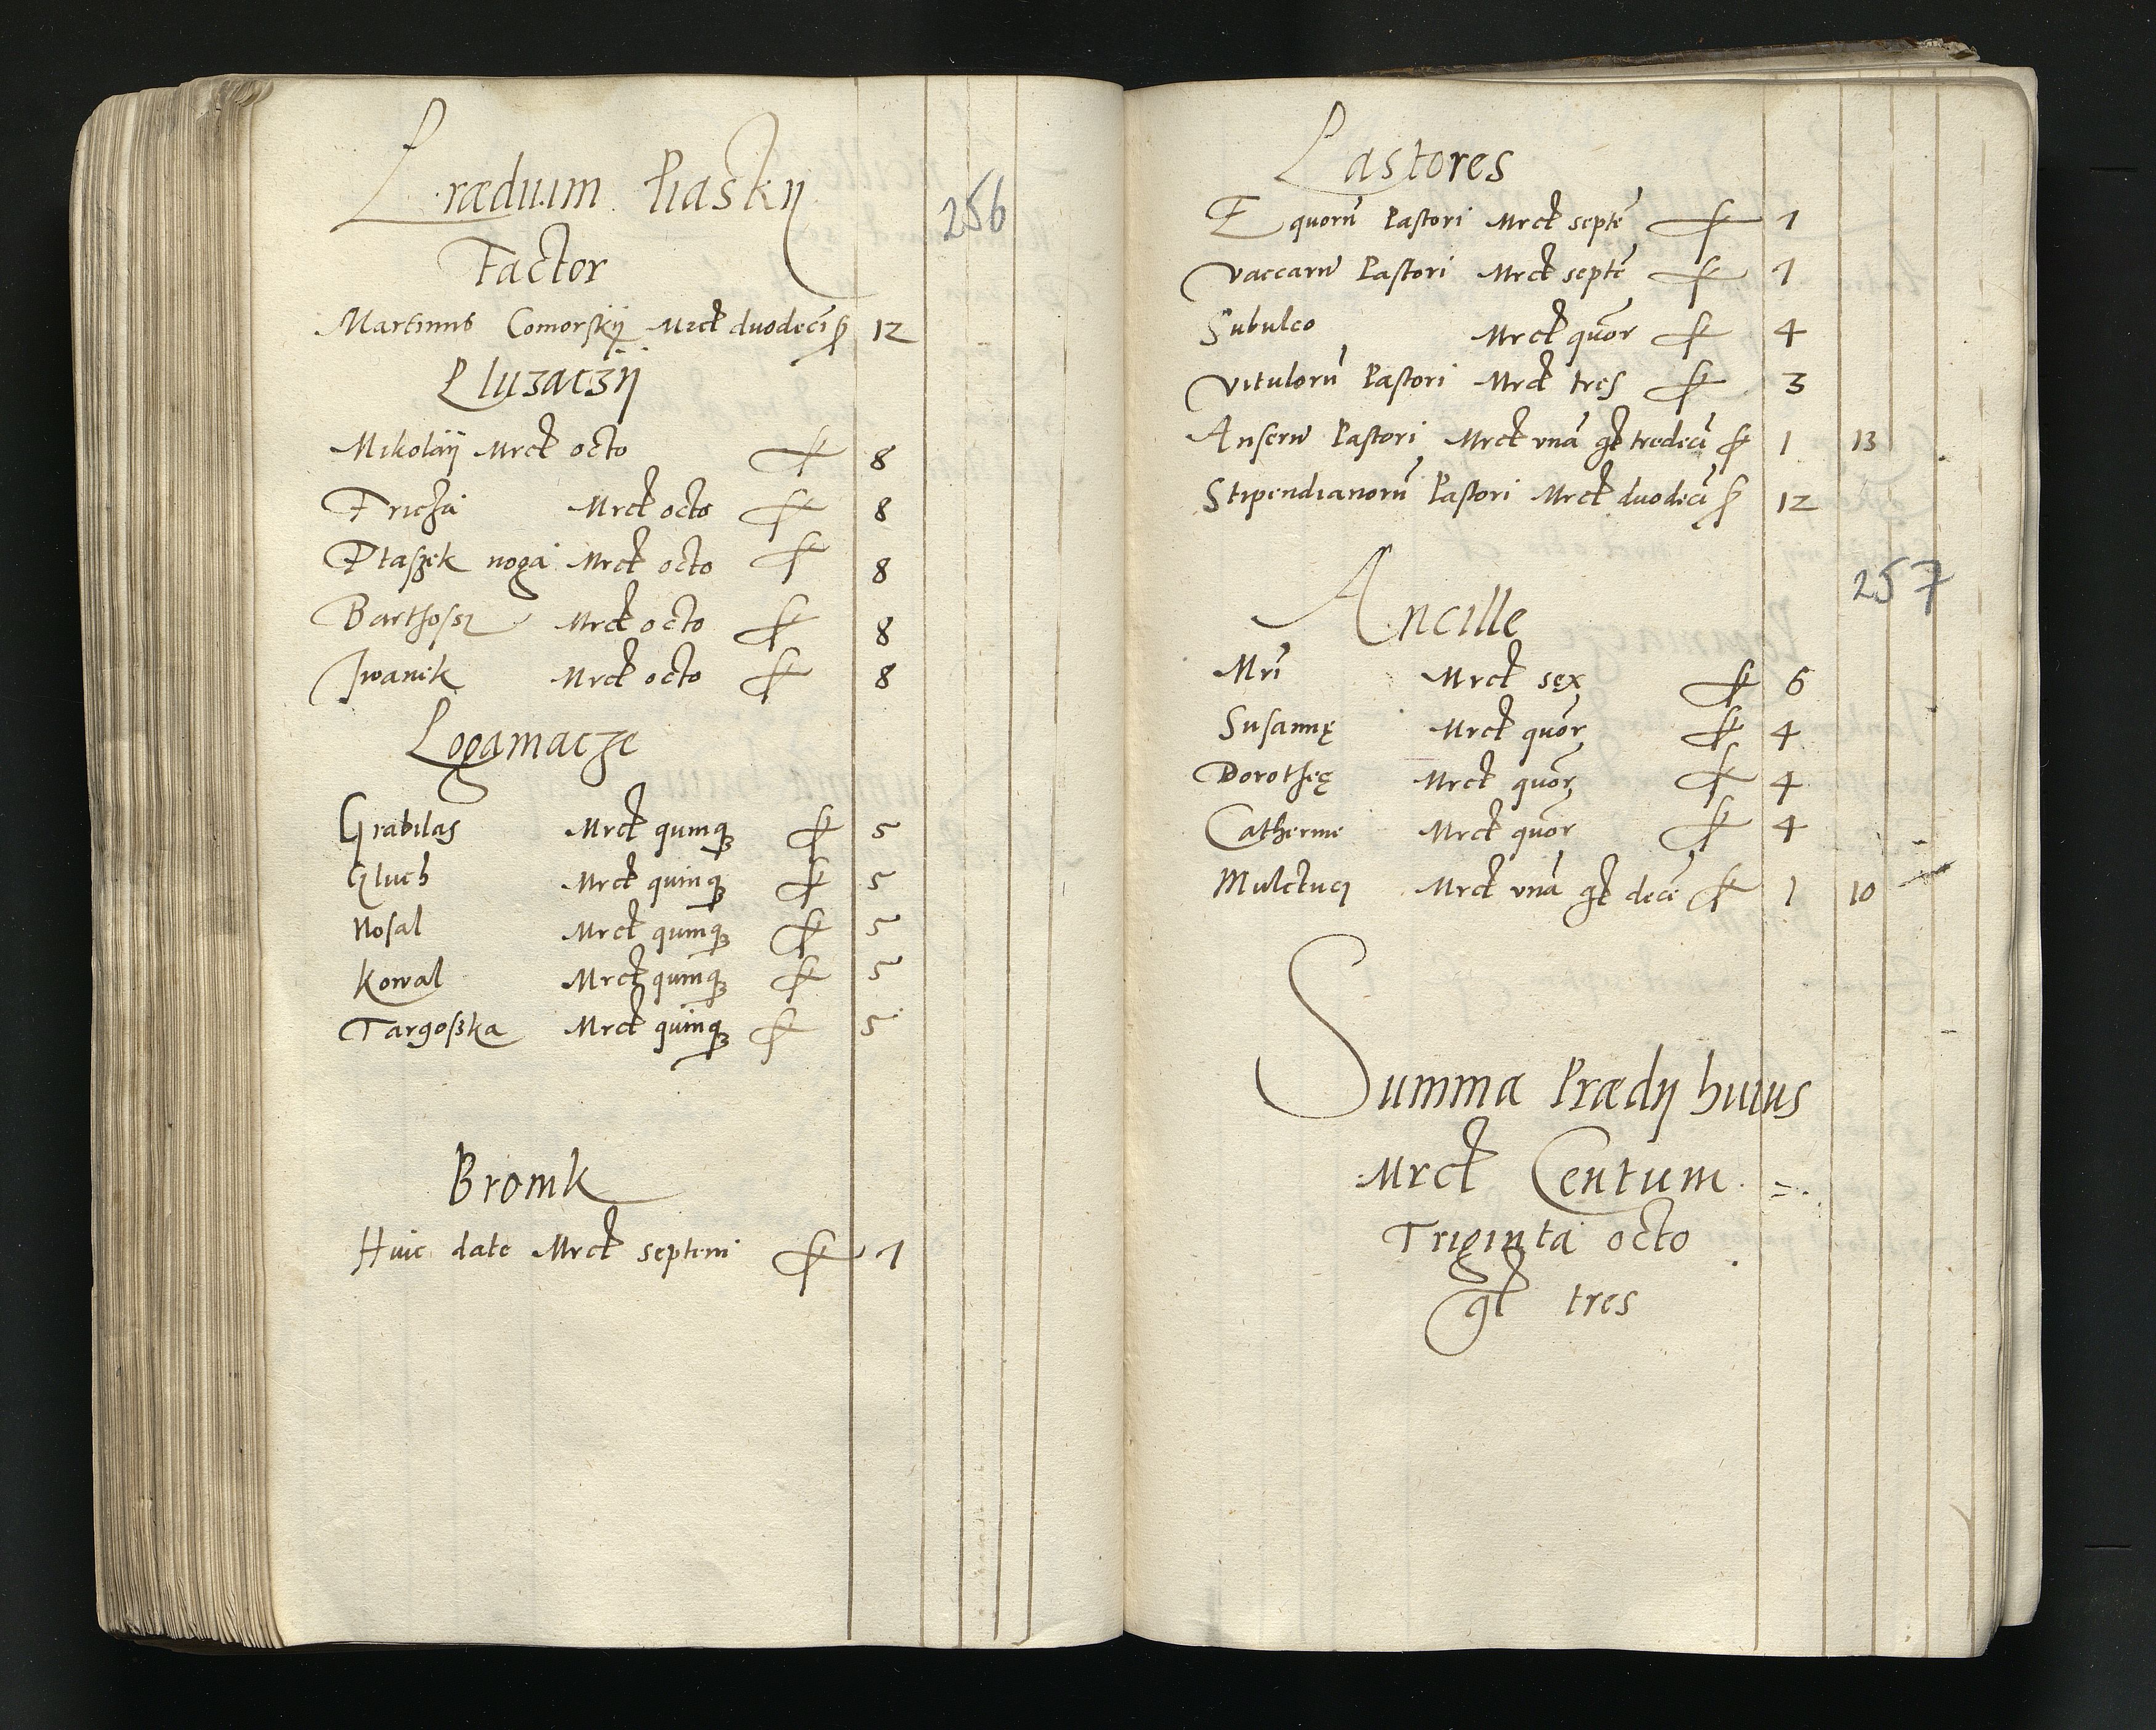 Prædium Piaskÿ
256
Factor
Martinus Comorskÿ Mrct duodeci͂ ꝑ 12
Pluzaczÿ
Mikolaÿ Mrct octo 8
Fricza Mrct octo 8
Ptaszek noga Mrct octo 8
Barthossz Mrct octo 8
Iwanik Mrct octo 8
Pogamacze
Grabilas Mrct quinqꝫ 5
Gluch Mrct quinqꝫ 5
Nosal Mrct quinqꝫ 5
Kowal Mrct quinqꝫ 5
Targoßka Mrct quinqꝫ 5
Bronik
Huic date Mrct septem 7
Pastores
Equorū Pastori Mrct septē 7
Vaccarū Pastori Mrct septē 7
Subulco Mrct quōr 4
Vitulorū Pastori Mrct tres 3
Anserū Pastori Mrct vnā gt tredecī 1 13
Stipendianorū Pastori Mrct duodecī 12
257
Ancille
Mrī Mrct sex 6
Susannę Mrct quōr 4
Dorotheę Mrct quōr 4
Catherine Mrct quōr 4
Mulctuci Mrct vnā gt decē 1 10
Summa Prædÿ huius
Mrct Centum
Triginta octo
gt tres